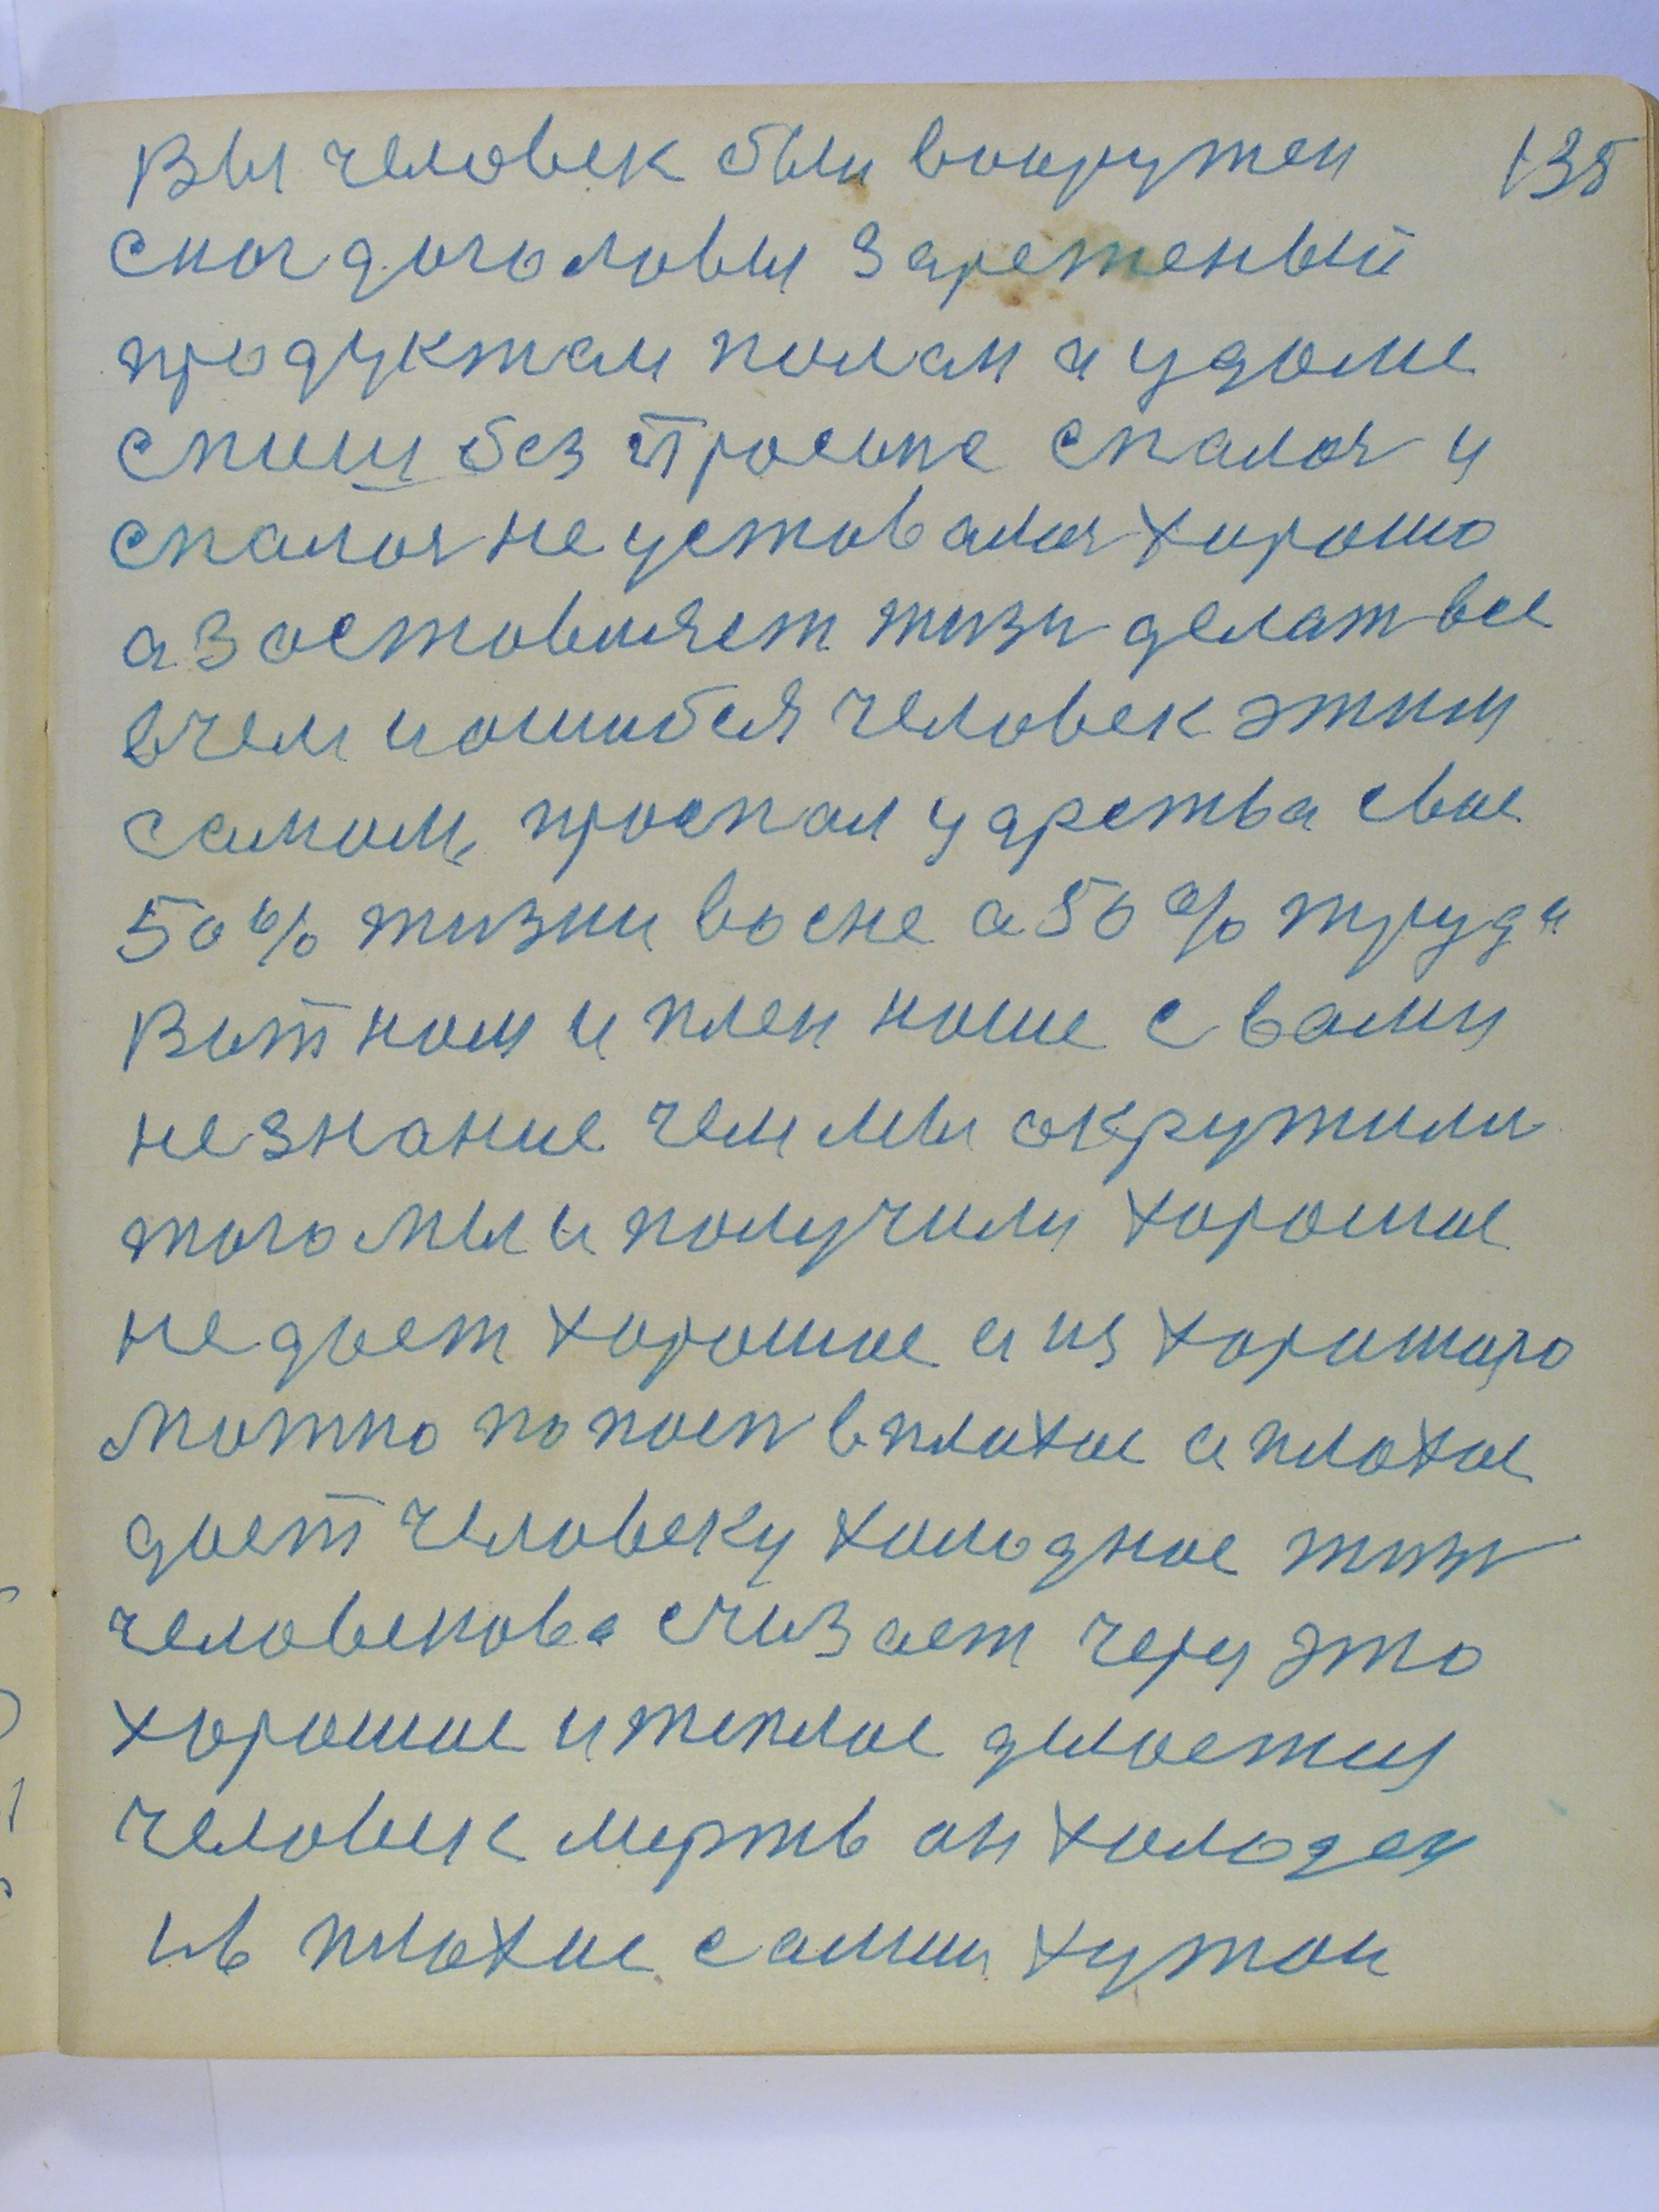 Вы человек были вооружен 135
с ног до головы зареженый
продуктам полам и удоме
спиш без просыпе спалося и
спалося не уставалося хорошо
а заставляет жизн делат все
в чем и ошибся человек этим
самом, проспал царства свое
50% жизни во сне а 50% труда
Вот ном и плен наше с вами
не знание чем мы окружили
того мы и получили хорошое
не дает хорошое а из хорошаго
можно попаст в плохое а плохое
дает человеку холодное жизн
человекова счизает через это
хорошое и теплое делается
человек мертв он холоден
и в плохое самим хужои